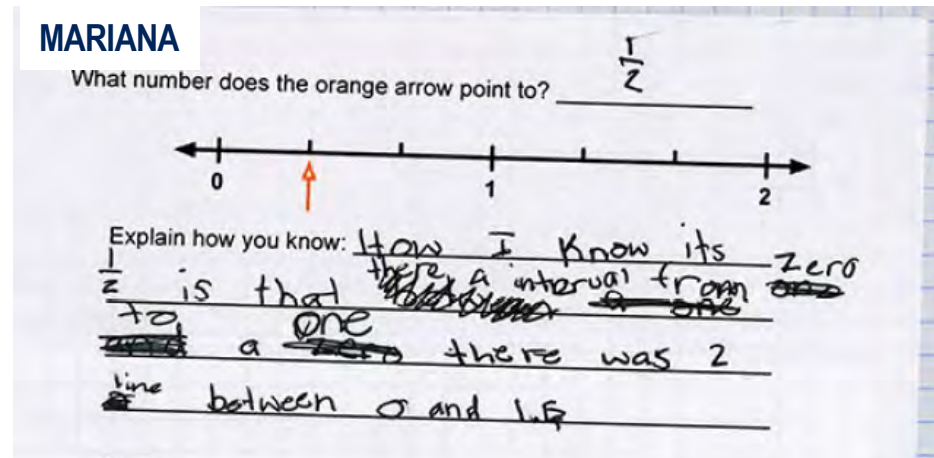 MARIANA
1/2
What number does the orange arrow point to?
0 1 2
Explain how you know: How I know its
1/2 is that there a interval from zero
to a one there was 2
line between 0 and 1.